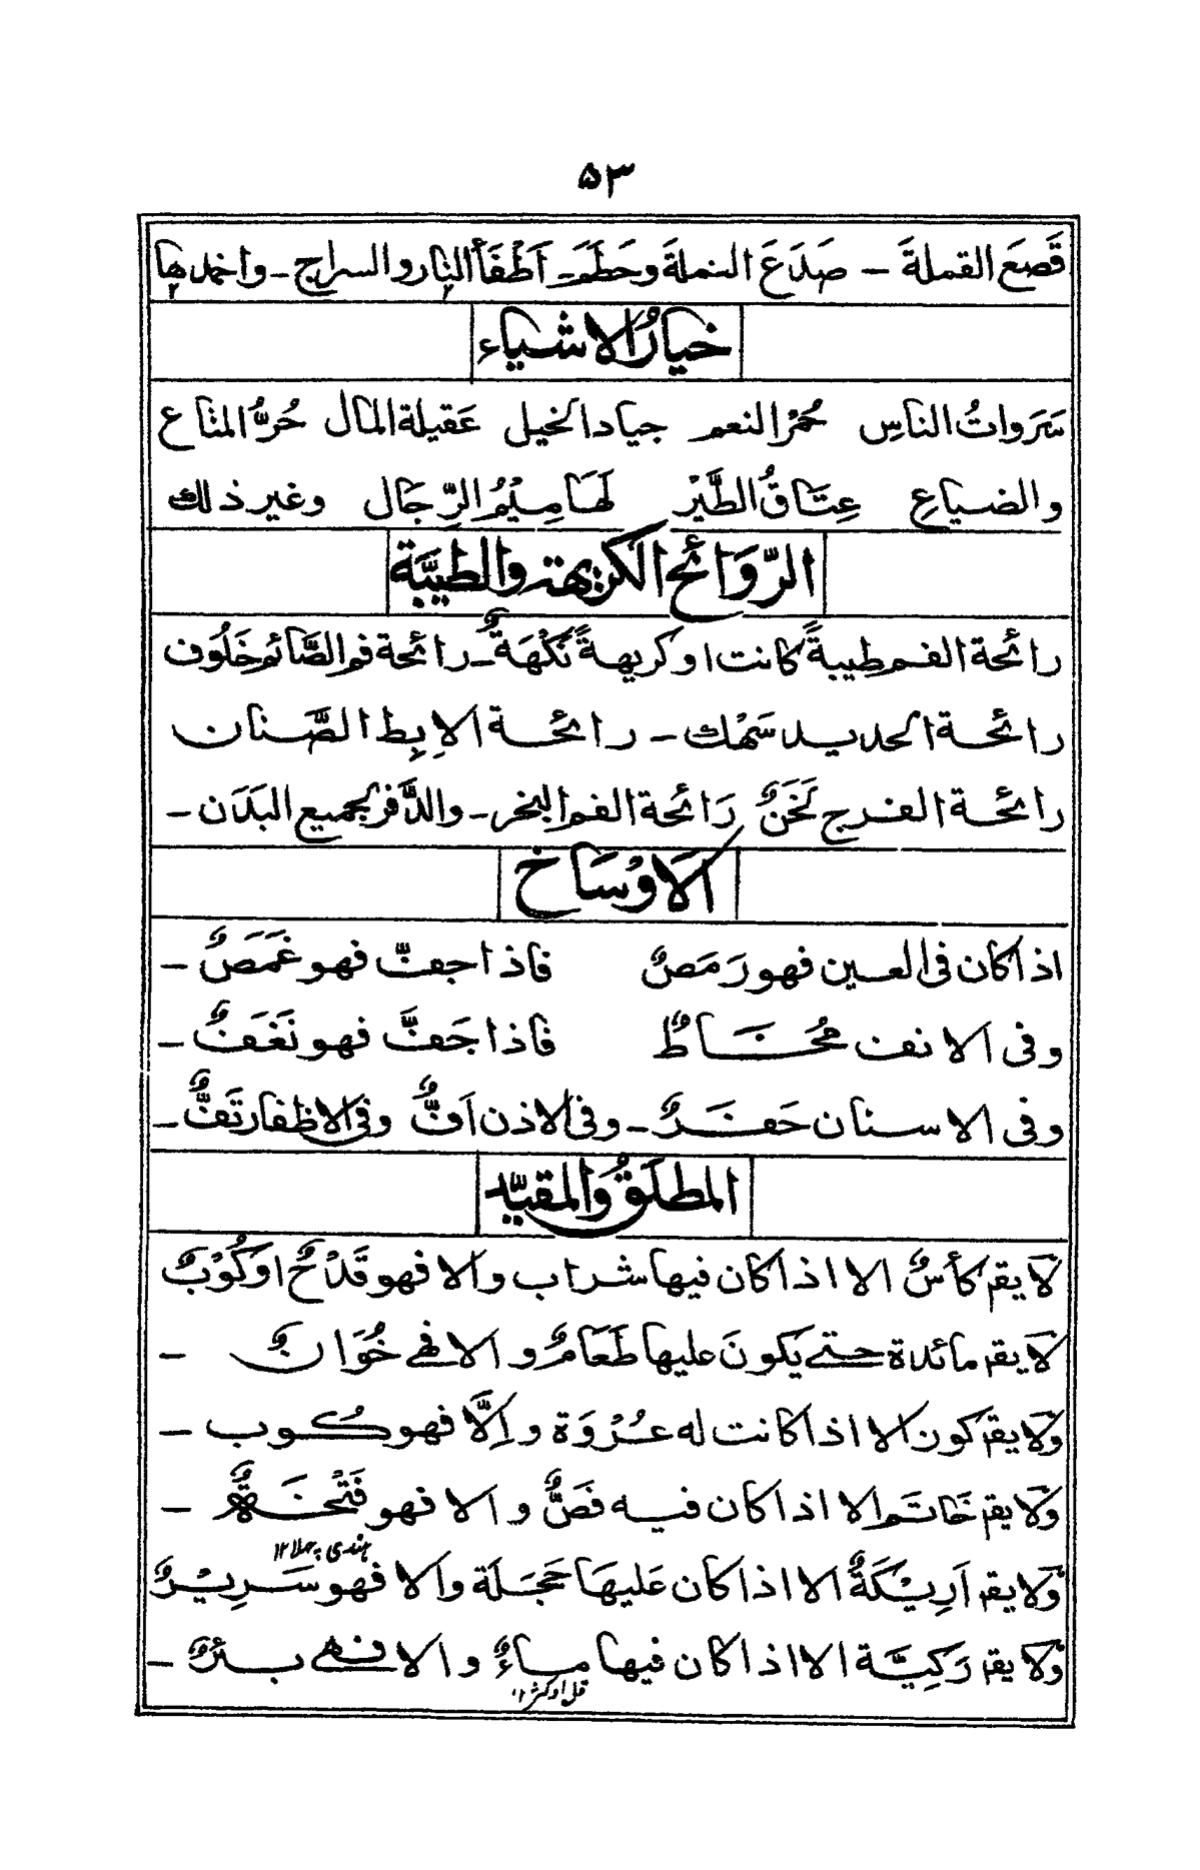 ۵۳
قَصَعَ القملةَ - صَدَعَ النملةَ وحَطَمَ - اَطْفَأَ النار والسراج - واخمدها
خيارُ الاشياء
سَرَواتُ الناسِ حُمْرُ النعم جياد الخيل عَقيلة المال حُرُّ المتاع
والضياعِ عِتَاقُ الطَّيْرِ لَهَامِيْمُ الرِّجَال وغير ذلك
الرَّوَائح الكريهة والطيبَّة
رائحة الفم طيبةً كانت او كريهةً نَكْهَةٌ - رائحة فم الصَّائم خَلُوف
رائحة الحديد سَهْك - رائحة الاِبِط الصَّنان
رائحة الفرج لَخَنٌ رَائحة الفم البخر - والذَّفر لجميع البَدَن -
اَلاَوْسَاخ
اذا كان فى العين فهو رَمَصٌ فاذا جفّ فهو غَمَصٌ -
وفى الانف مُخَاطٌ فاذا جَفَّ فهو نَغَفٌ -
وفى الاسنان حَفَرٌ - وفى الاذن اَفٌّ وفى الاظفار تَفٌّ -
المطلَقُ والمقيّد
لَا يقم كأسٌ الا اذا كان فيها شراب والا فهو قَدْحٌ او كُوْبٌ
لَا يقم مائدة حتے يَكونَ عليها طَعَامٌ والا فهے خُوَانٌ -
ولَا يقم كون الا اذا كانت له عُرْوَة واِلَّا فهو كوب -
ولَا يقم خَاتَم الا اذا كان فيه فَصٌّ والا فهو فَتْخَةٌ -
هندى پهلا ۱۲
ولَا يقم اَرِيْكَةٌ الا اذا كان عَليهَا حَجَلَة والا فهو سَرِيْرٌ
ولَا يقم رَكِيَّة الا اذا كان فيها مـاءٌ والا فهے بئرٌ -
قل او كثر ۱۲